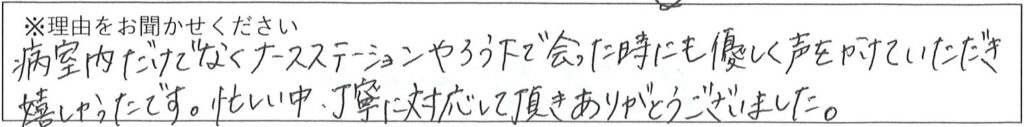 ※理由をお聞かせください
病室内だけでなくナースステーションやろう下で会った時にも優しく声をかけていただき
嬉しかったです。忙しい中、丁寧に対応して頂きありがとうございました。